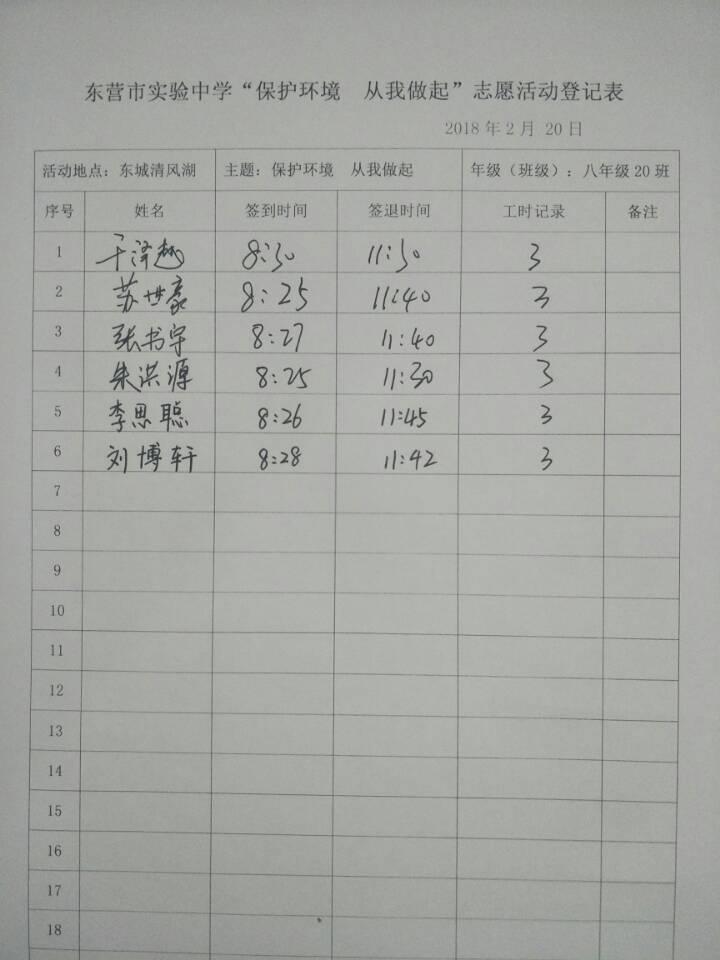 东营市实验中学“保护环境　从我做起”志愿活动登记表
2018年2月 20日
活动地点：东城清风湖 主题：保护环境　从我做起 年级（班级）：八年级20班
序号 姓名 签到时间 签退时间 工时记录 备注
1 于泽越 8:30 11:30 3
2 苏世豪 8:25 11:40 3
3 张书宇 8:27 11:40 3
4 朱洪源 8:25 11:30 3
5 李思聪 8:26 11:45 3
6 刘博轩 8:28 11:42 3
7
8
9
10
11
12
13
14
15
16
17
18